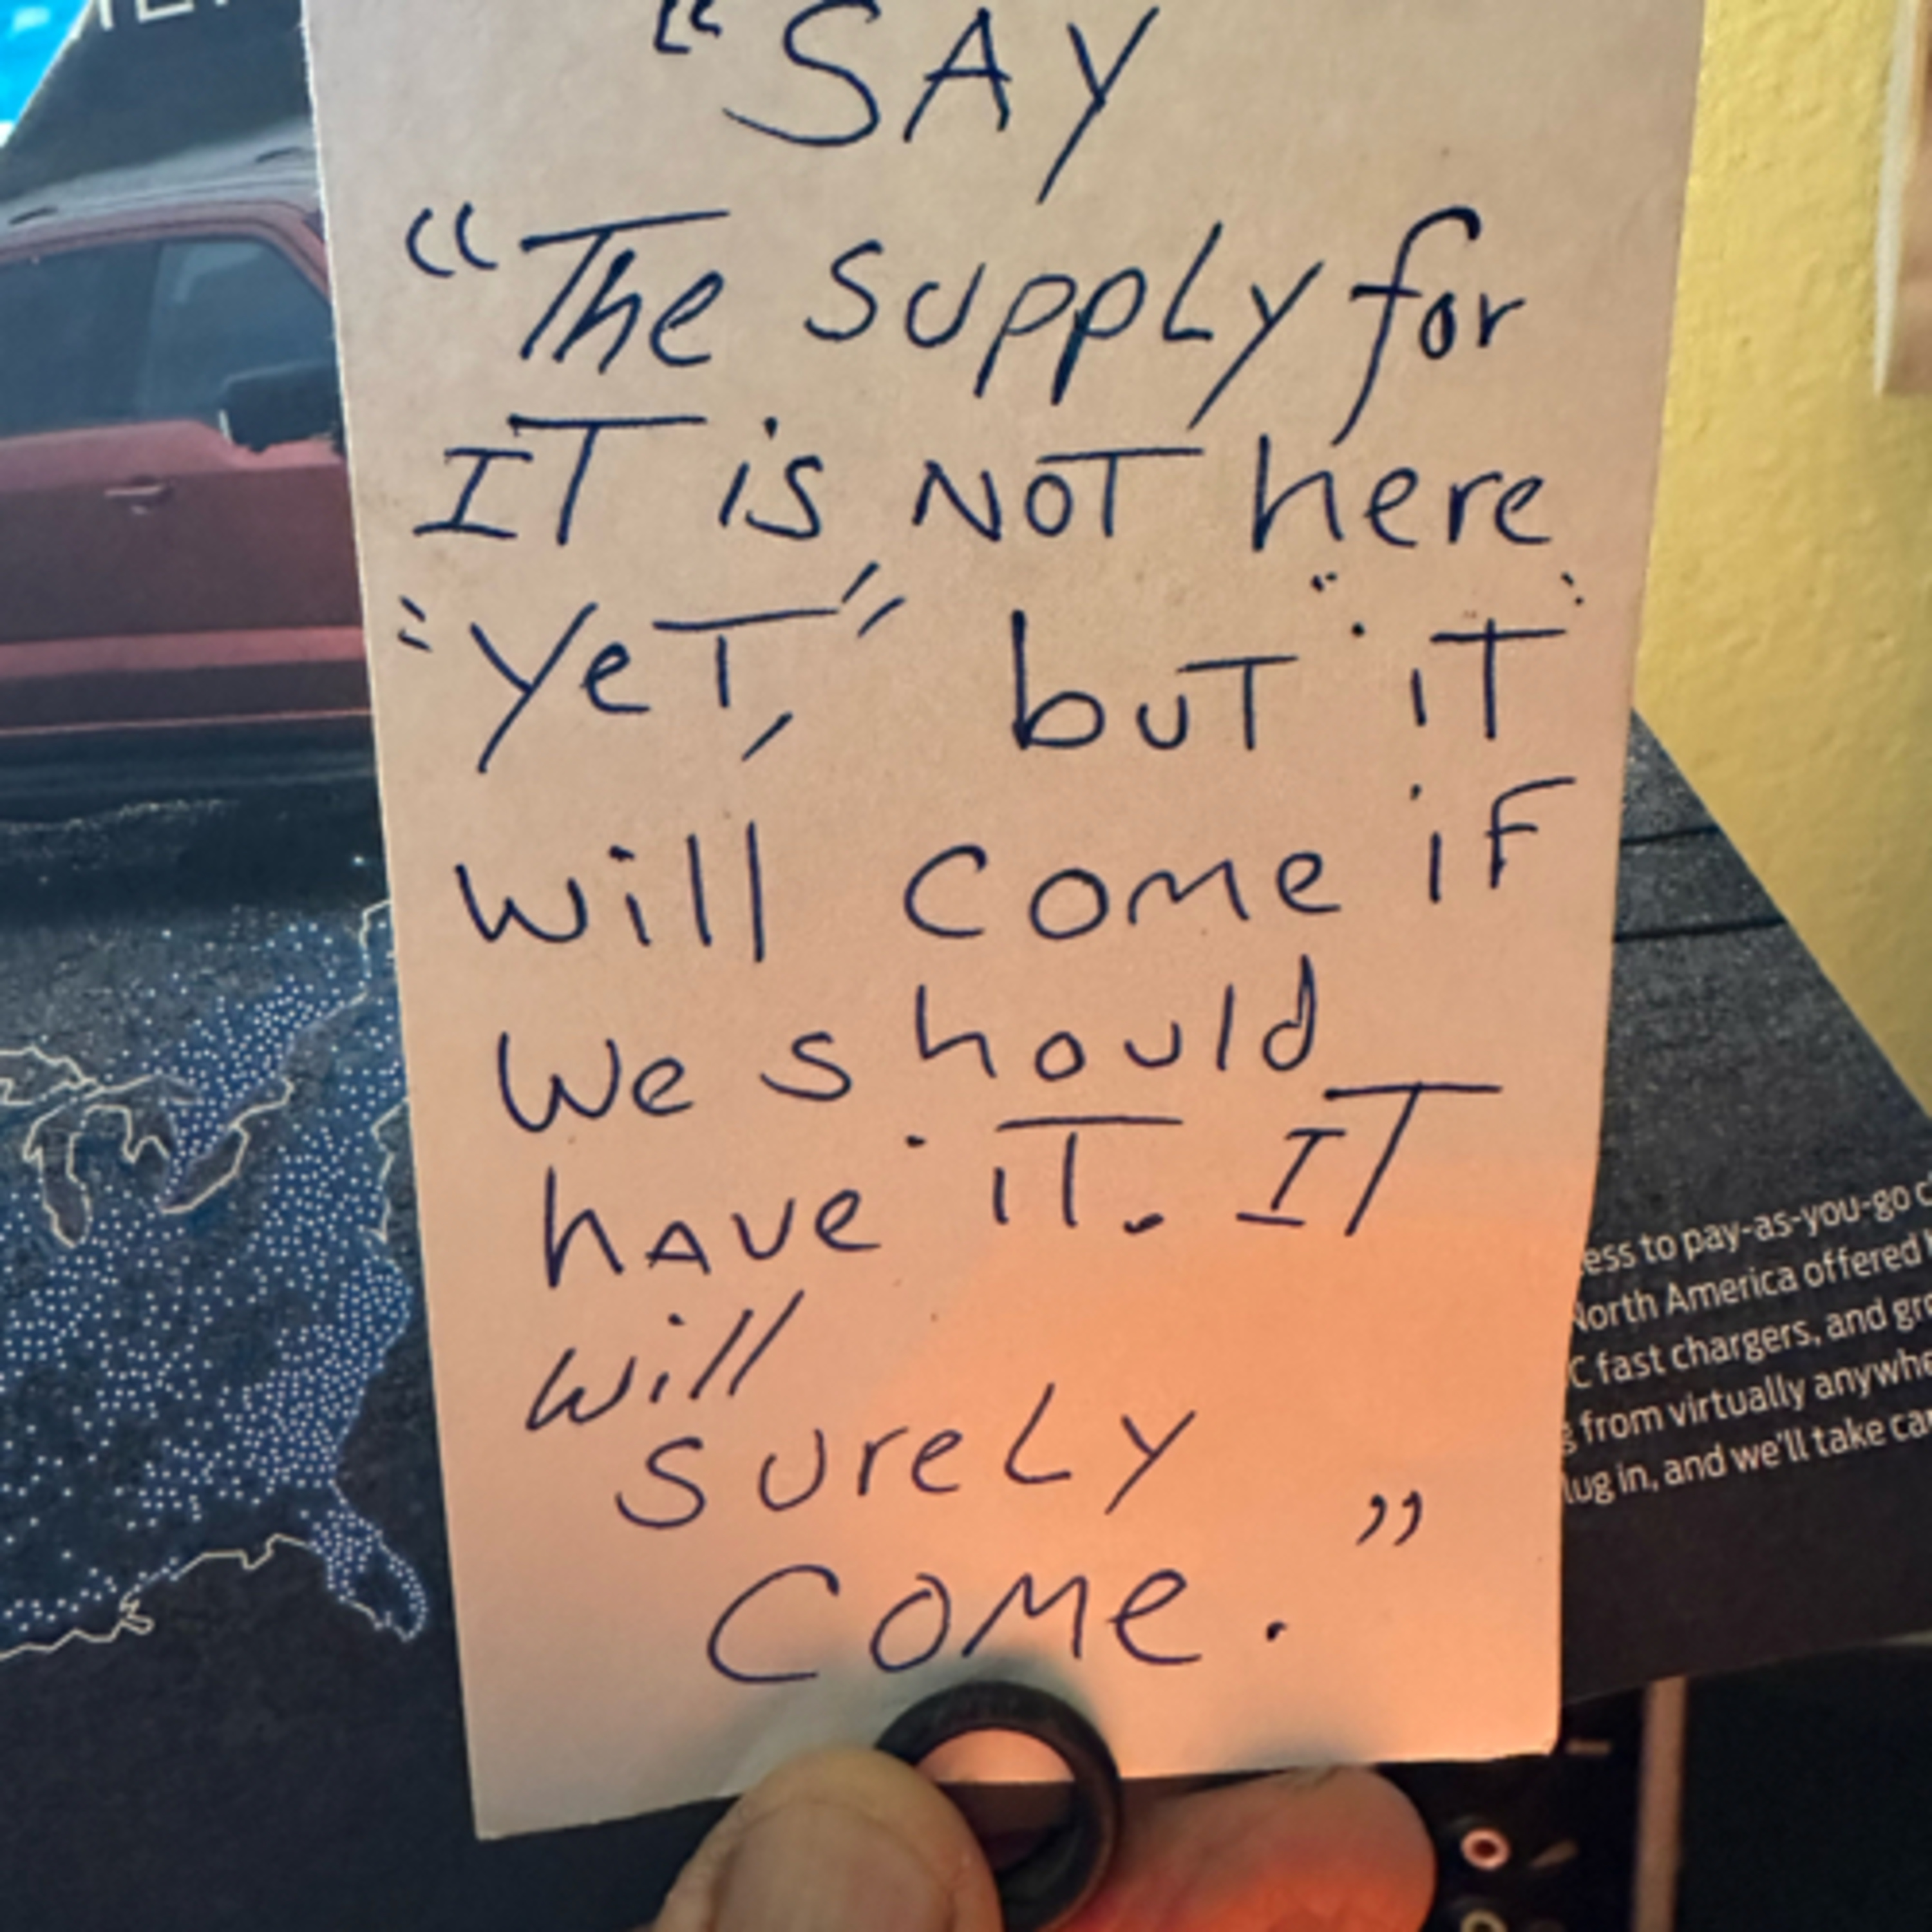 "SAY
"The supply for
IT is NOT here
"YeT," but "iT"
will come if
We should
have iT. IT
will
surely
come."
ess to pay-as-you-go
North America offered
C fast chargers, and
from virtually
lug in, and we'll take